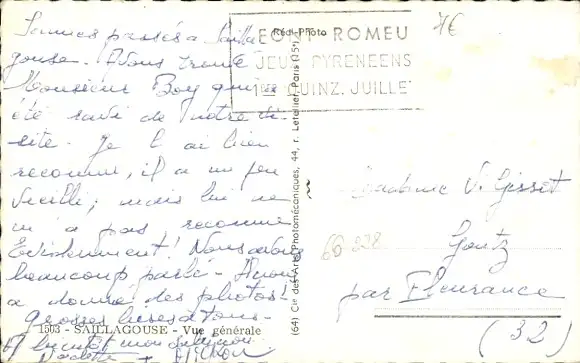 Sommes passés à Sailla
gouse. Avons trouvé
Monsieur Boy qui a
été ravi de notre vi-
site. Je l'ai bien
reconnu, il a un peu
vieilli; mais lui ne
m'a pas reconnu
Évidemment! Nous avons
beaucoup parlé -
a donné des photos!
Grosses bises à tous -
1503 - SAILLAGOUSE - Vue générale
A bientôt mon
+
Rédi-Photo
FONT ROMEU
JEUX PYRENEENS
1ERE QUINZ. JUILLET
7€
(64) Cie des Arts Photomécaniques, 44, r. Letellier, Paris (15e)
Madame V. Gisset
66 228
Goutz
par Fleurance
(32)